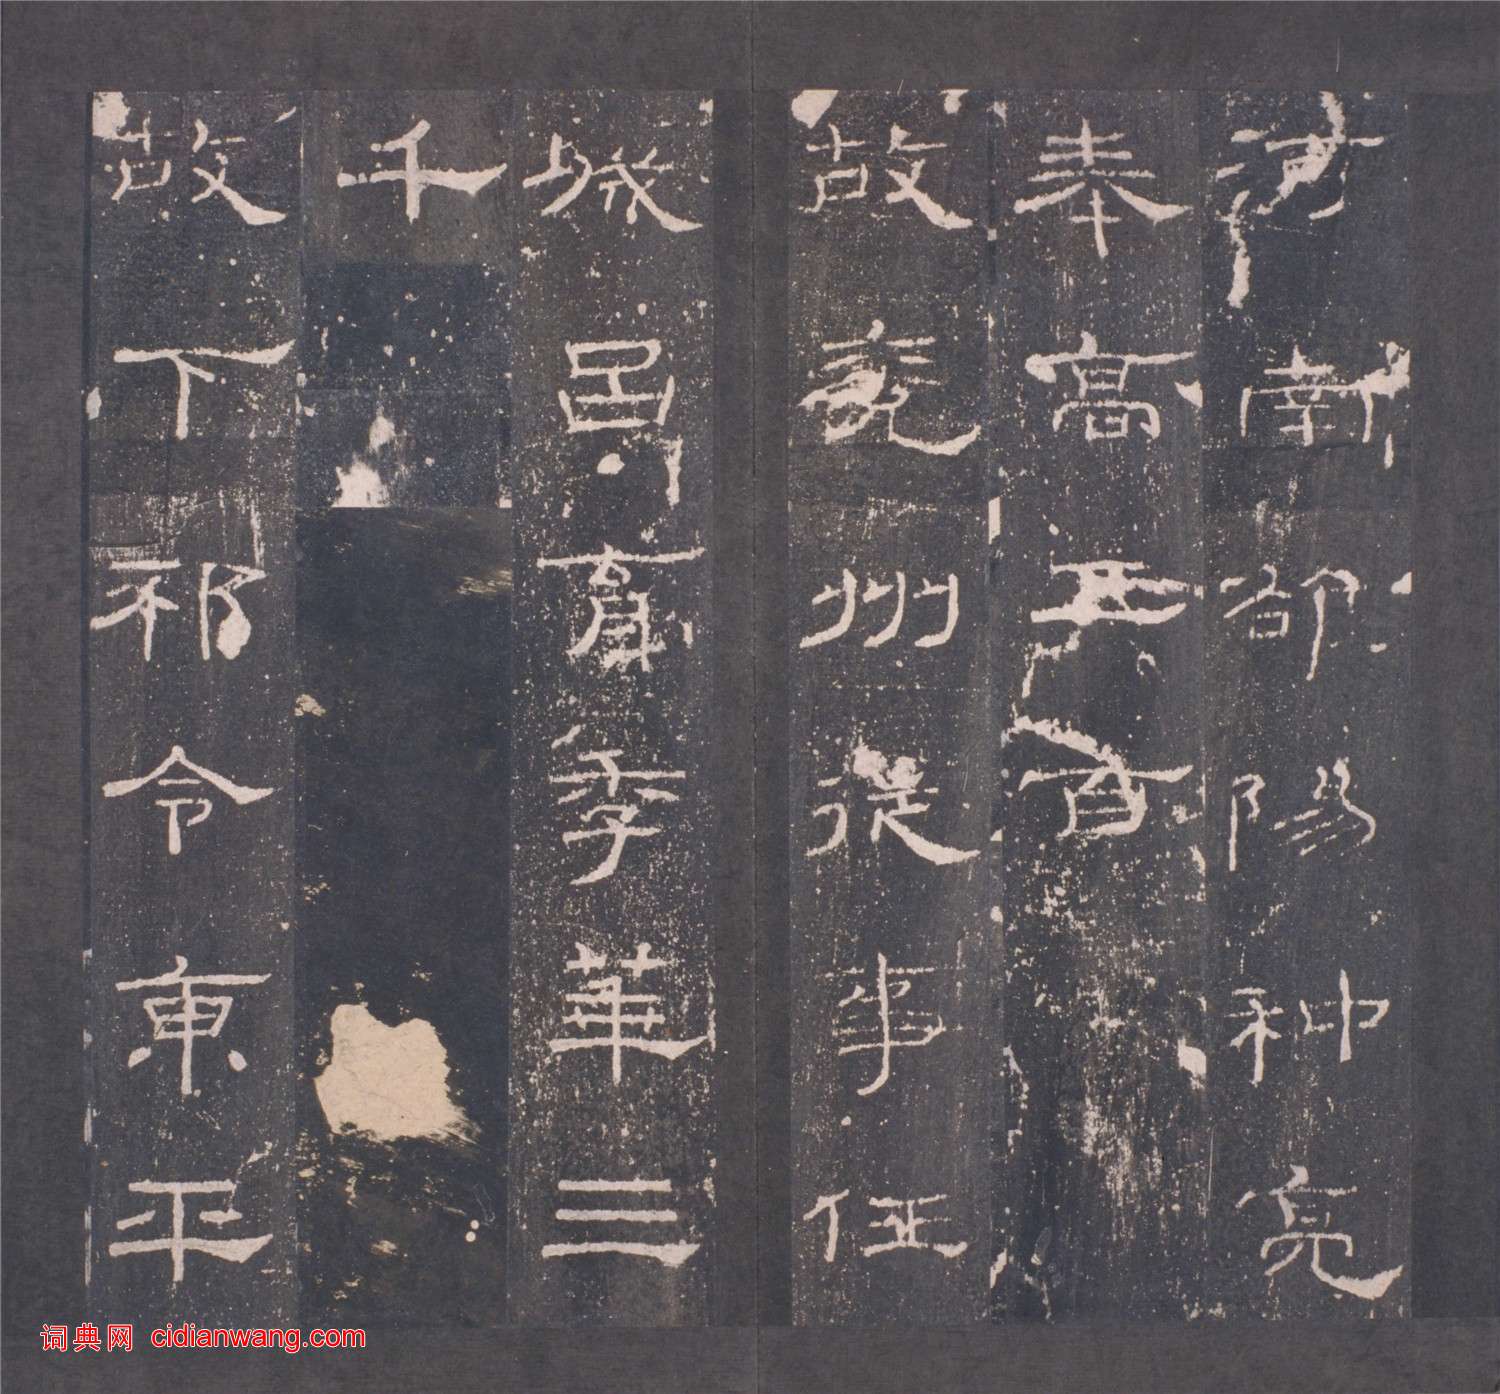 河南陽种亮
奉高五百
故兗州從事任
城呂育季華三
千
故下邳令東平
词典网 cidianwang.com